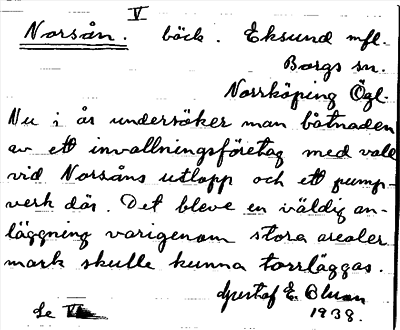 V
Norsån. bäck. Eksund mfl.
Borgs sn.
Norrköping Ögl.
Nu i år undersöker man båtnaden
av ett invallningsföretag med vall
vid Norsåns utlopp och ett pump-
verk där. Det bleve en väldig an-
läggning varigenom stora arealer
mark skulle kunna torrläggas.
Gustaf E. Bluan
1938.
Se